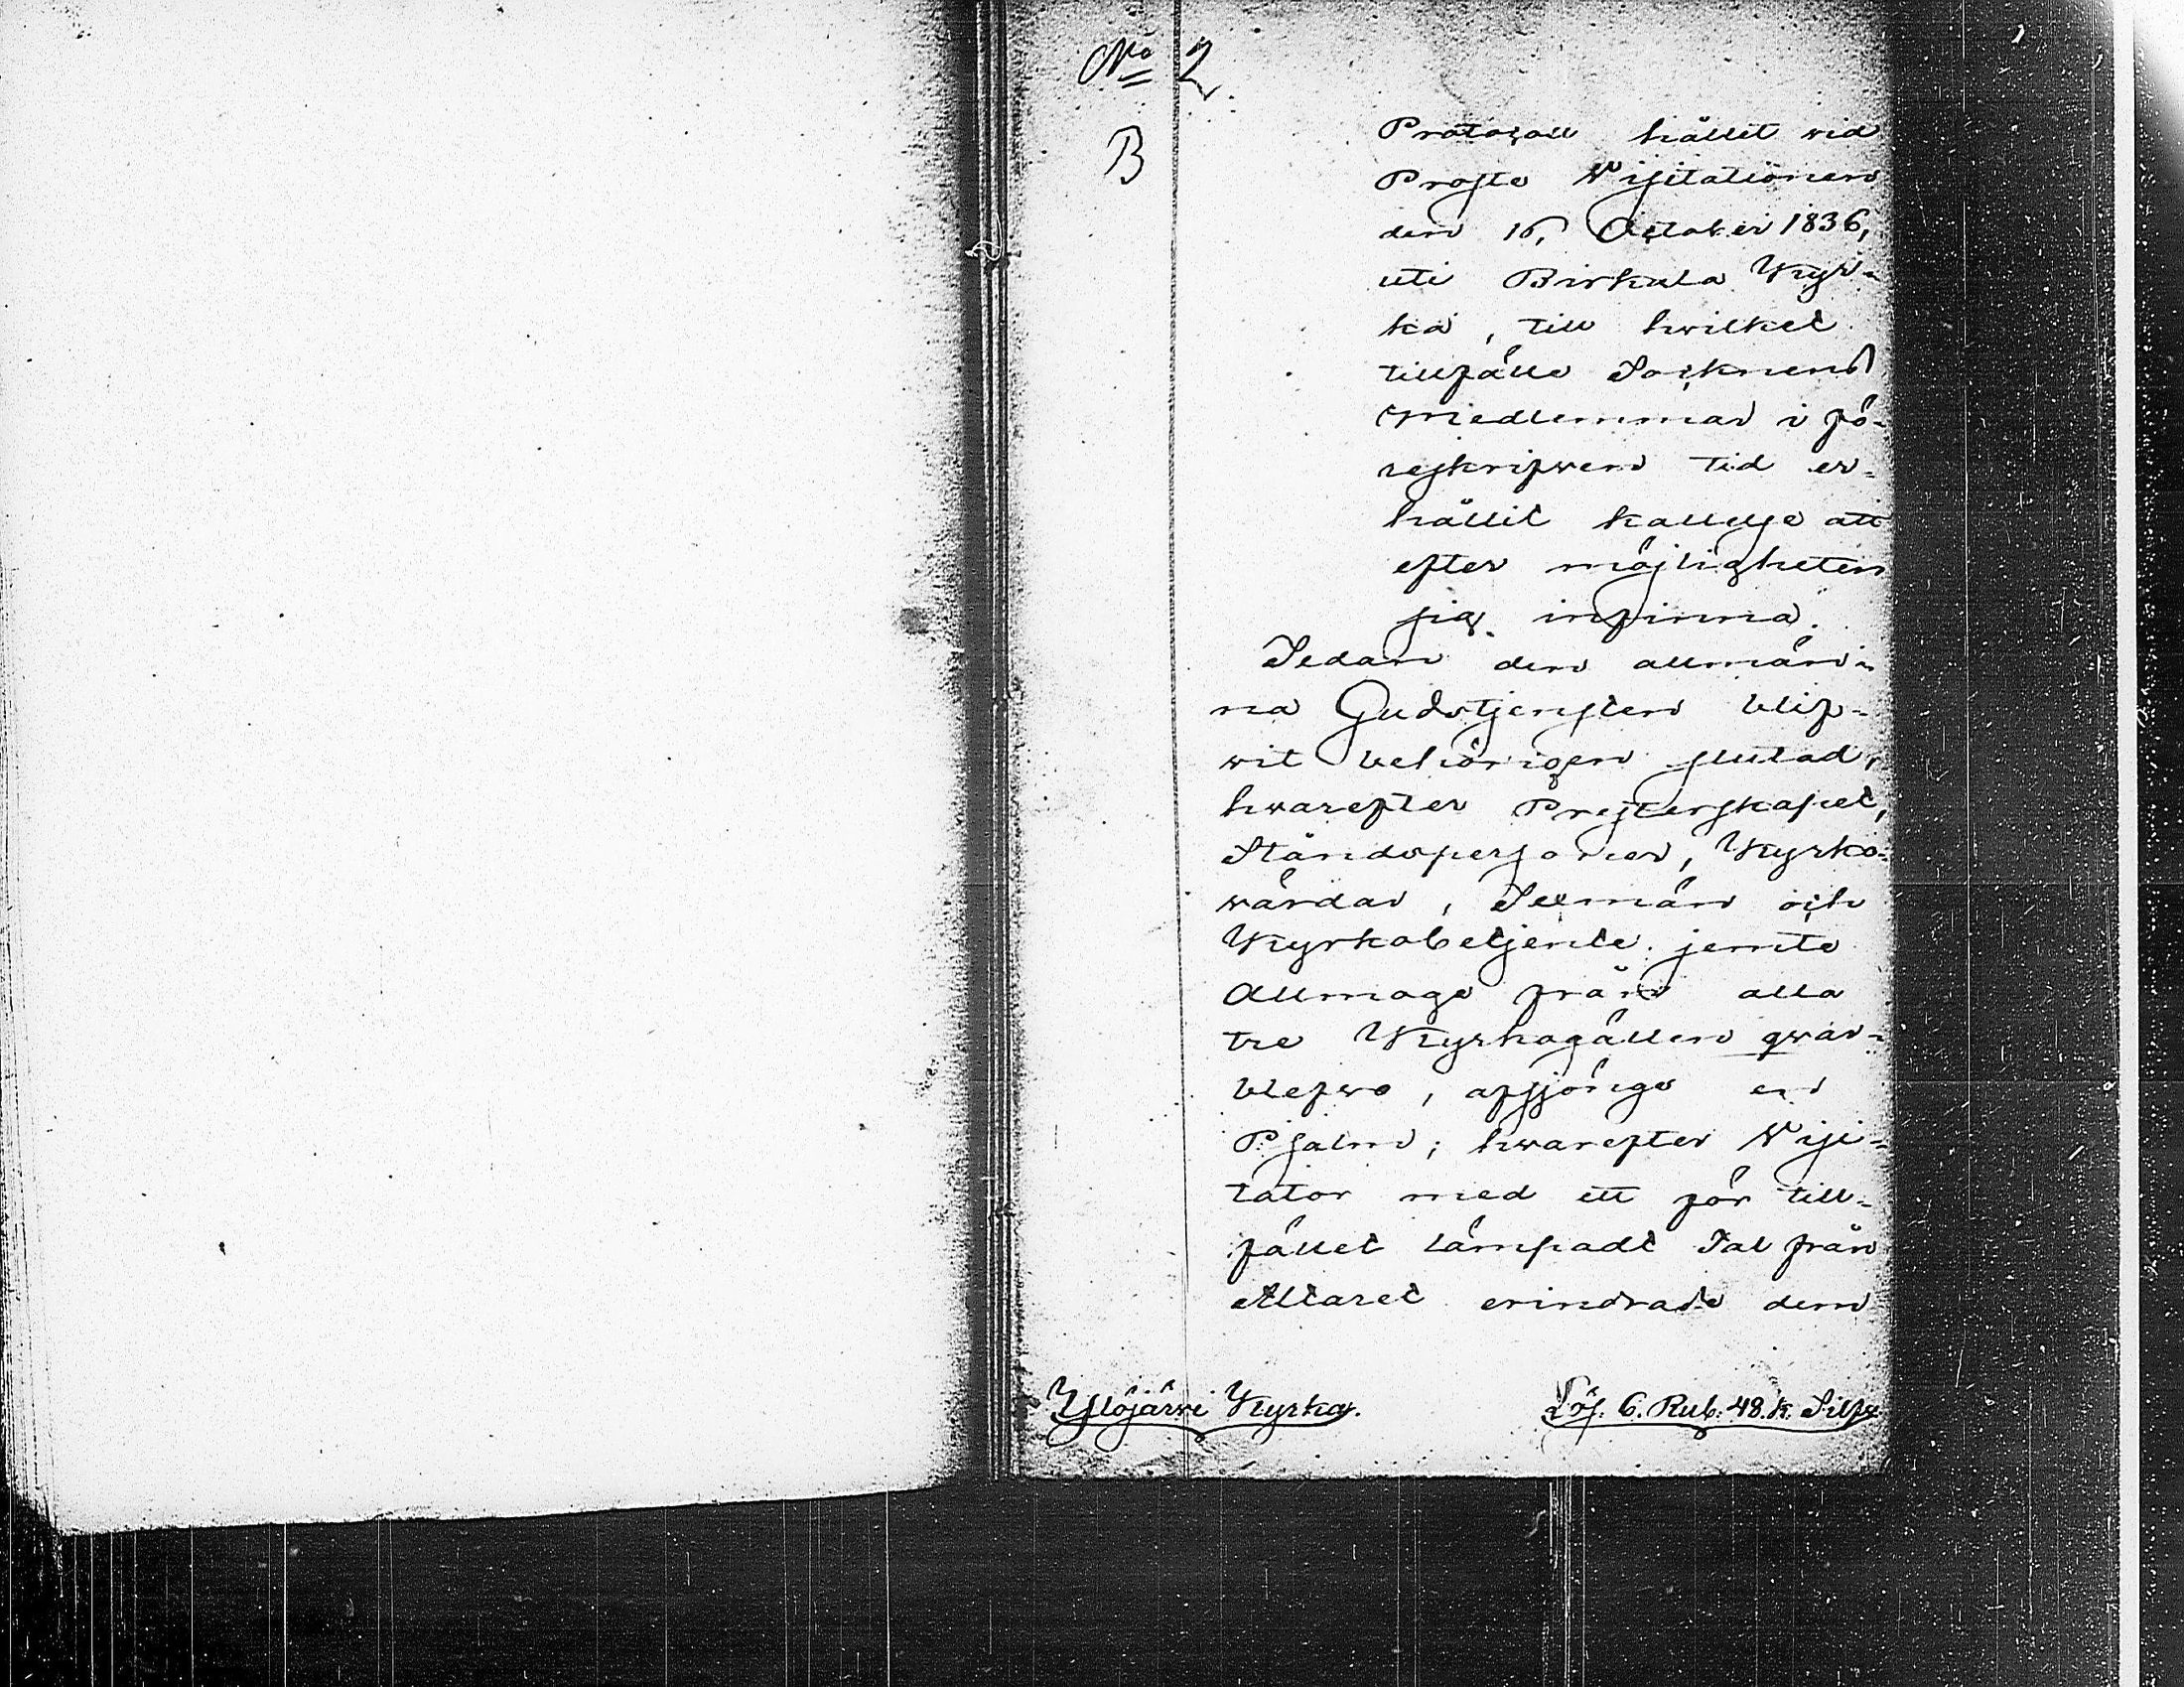 No 2
B
Protocoll hållit vid
Proste Visitationen
den 16, October 1836,
uti Birkala Kyr-
ka, till hvilket
tillfälle Socknens
Medlemmar i fö-
reskrifven tid er-
hållit kallelse att
efter möjligheten
sig infinna.
Sedan den allmän-
na Gudstjensten blif-
vit behörigen slutad,
hvarefter Presterskapet,
Ståndspersoner, Kyrko-
värdar, Sexmän och
Kyrkobetjente jemte
Allmoge från alla
tre Kyrkogällen qvar-
blefvo, afsjöngs en
Psalm; hvarefter Visi-
tator med ett för till-
fället lämpadt Tal från
Altaret erindrade dem
Ylöjärvi Kyrka.
Lös. 6. Rub. 48. k. Silfv.